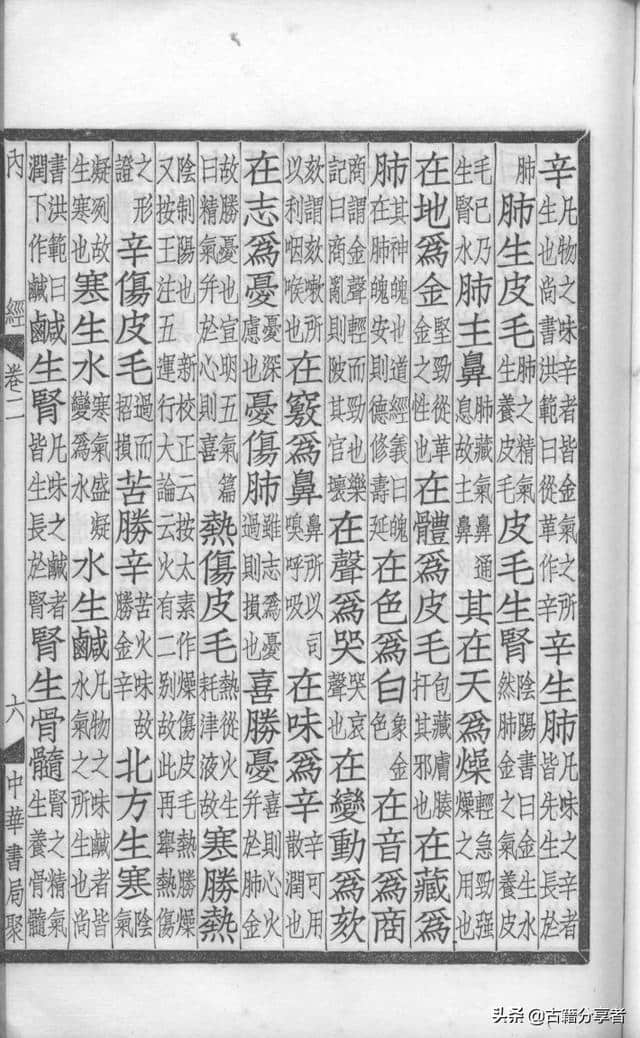 辛凡物之味辛者皆金氣之所生也尚書洪範曰從革作辛辛生肺凡味之辛者皆先生長於
肺肺生皮毛肺之精氣生養皮毛皮毛生腎陰陽書曰金生水然肺金之氣養皮
毛已乃生腎水肺主鼻肺藏氣鼻通息故主鼻其在天爲燥輕急勁强燥之用也
在地爲金堅勁從革金之性也在體爲皮毛包藏膚腠扞其邪也在藏爲
肺其神魄也道經義曰魄在肺魄安則德修壽延在色爲白象金色在音爲商
商謂金聲輕而勁也樂記曰商亂則陂其官壞在聲爲哭哭哀聲也在變動爲欬
欬謂欬嗽所以利咽喉也在竅爲鼻鼻所以司嗅呼吸在味爲辛辛可用散潤也
在志爲憂憂深慮也憂傷肺雖志爲憂過則損也喜勝憂喜則心火并於肺金
故勝憂也宣明五氣篇曰精氣并於心則喜熱傷皮毛熱從火生耗津液故寒勝熱
陰制陽也新校正云按太素作燥傷皮毛熱勝燥又按王注五運行大論云火有二別故此再舉熱傷
之形證辛傷皮毛過而招損苦勝辛苦火味故勝金辛北方生寒陰氣
凝冽故生寒也寒生水寒氣盛凝變爲水水生鹹凡物之味鹹者皆水氣之所生也尚
書洪範曰潤下作鹹鹹生腎凡味之鹹者皆生長於腎腎生骨髓腎之精氣生養骨髓
內經 卷二 六 中華書局聚
头条 @古籍分享者